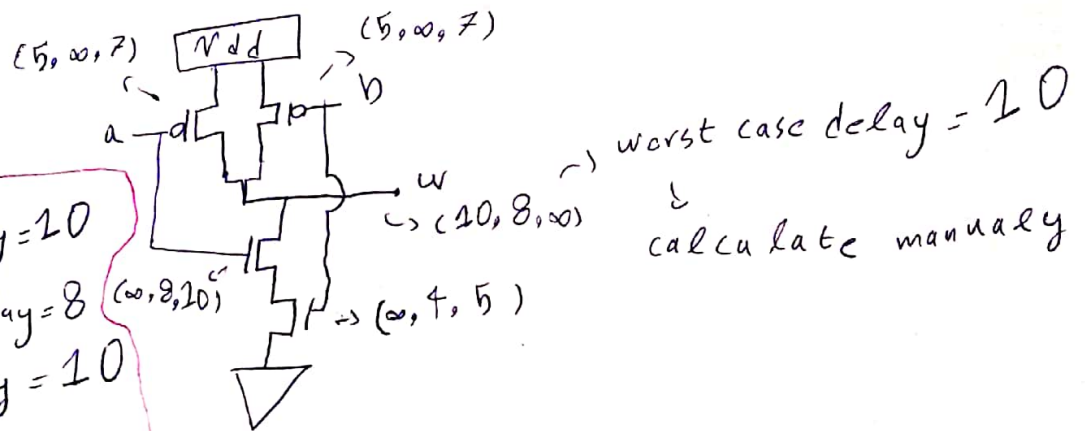 (5, ∞, 7)
Vdd
(5, ∞, 7)
a
b
worst case delay = 10
calculate manualy
w
(10, 8, ∞)
y = 10
ay = 8
y = 10
(∞, 8, 10)
(∞, 4, 5)